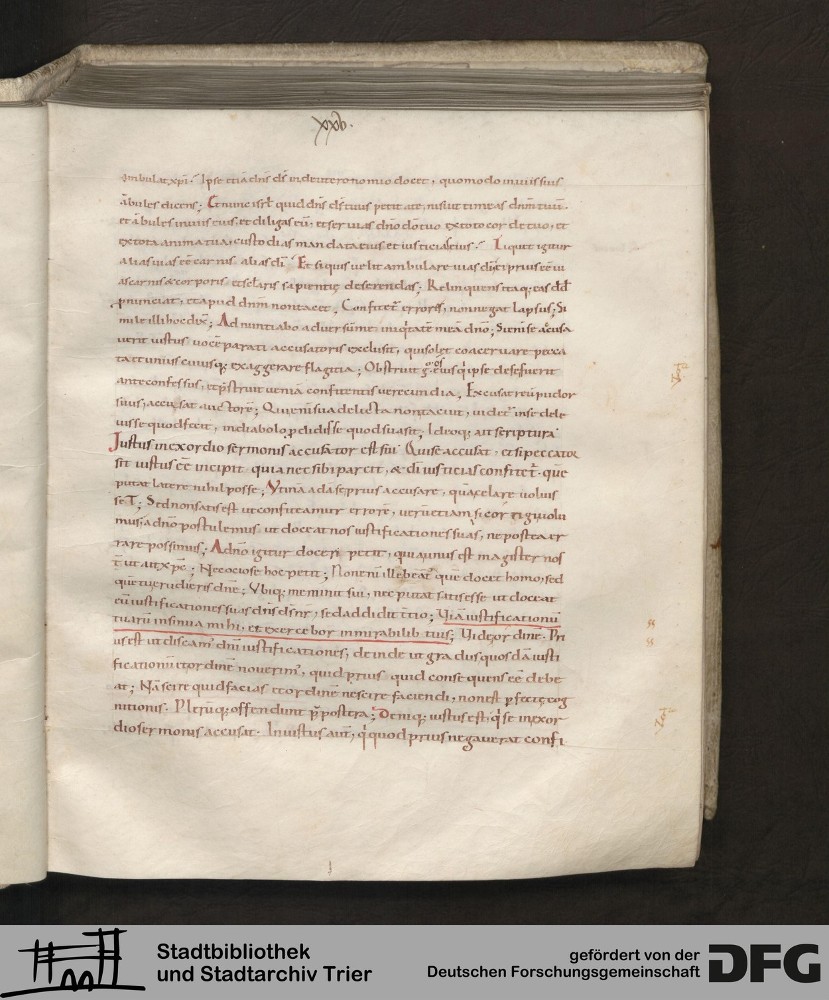 xxv.
ambulat xpi. Ipse etiā dn̄s dˢ in deuteronomio docet, quomodo in uiis suis
ābules dicens; Et nunc isrl quid dn̄s dˢ tuus petit a te, nisi ut timeas dnm tuū.
et ābules in uiis eius, et diligas eū, et seruias dn̄o dō tuo ex toto corde tuo, et
ex tota anima tua, custodias mandata eius et iusticias eius. Liquet igitur
alias uias eē carnis. alias dī. Et si quis uelit ambulare uias dī, prius eē ui
as carnis & corporis et sclaris sapientię deserendas; Relinquens itaq; eas
pnunciat, et apud dnm non tacet. Confitet̄ errores, non negat lapsus; Si
mile illi hoc dix̄; Adnuntiabo aduersū me iniq̄tatē meā dn̄o; Sieni se accusa
uerit iustus uocē parati accusatoris exclusit, qui solet coaceruare pecca
ta et unius cuiusq; exaggerare flagitia; Obstruit eius q̄ ipse de se fuerit
ante confessus, et p̄struit ueniā confitentis uerecundia. Excusat reū pudor
suus, accusat auctorē; Qui eni sua delicta non tacuit, uidet̄ in se dele
uisse quod fecit, in diabolo p̄didisse quod suasit; Ideoq; ait scriptura
Iustus in exordio sermonis accusator est sui. Qui se accusat, etsi peccator
sit iustus eē incipit. quia nec sibi parcit, & dī iusticias confitet̄. quē
putat latere nihil posse; Vtinā adā se prius accusare, quā celare uoluis
set; Sed non satis est ut confiteamur errorē, uerū etiam si corrigi uolu
mus, a dn̄o postulemus ut doceat nos iustificationes suas, ne postea er
rare possimus; A dn̄o igitur doceri petit, qui unus est magister nos
t̄ ut ait xp̄c; Nec ociose hoc petit; Non eni ille beat̄ quē docet homo, sed
quē tu erudieris dn̄e; Vbiq; meminit sui, nec putat satis esse ut doceat
eū iustificationes suas dn̄s dˢ nr̄, sed addidit c̄tio; Viā iustificationū
tuarū insinua mihi. et exercebor in mirabilib tuis; Vide ordinē. Pri
us est ut discam dn̄i iustificationes, deinde ut gradus quosdā iusti
ficationū et ordinē nouerim, quid prius quid consequens eē debe
at; Nā scire quid facias et ordinē nescire faciendi, non est pfectę cog
nitionis. Plerūq; offendunt p̄postera; Deniq; iustus est, q̄ se in exor
dio sermonis accusat. Iniustus aut̄, q̄ quod prius negauerat confi
Stadtbibliothek
und Stadtarchiv Trier
gefördert von der
Deutschen Forschungsgemeinschaft
DFG